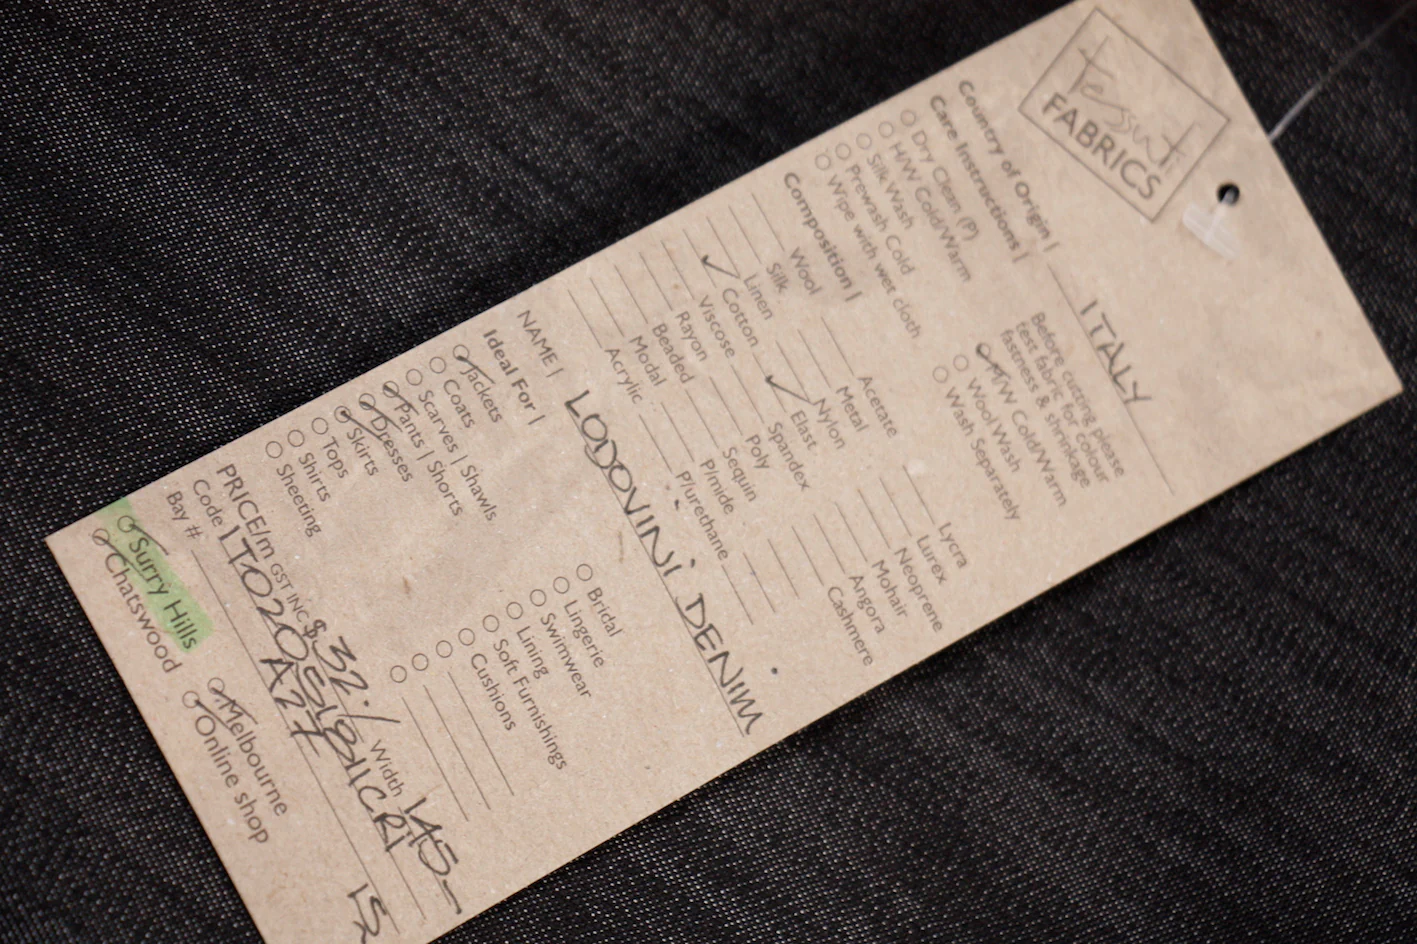 tessuti
FABRICS
Country of Origin | ITALY
Care Instructions |
Dry Clean (P)
H/W Cold/Warm
Silk Wash
Prewash Cold
Wipe with wet cloth
Before cutting please
test fabric for colour
fastness & shrinkage
M/W Cold/Warm
Wool Wash
Wash Separately
Composition |
Wool
Silk
Linen
Cotton
Viscose
Rayon
Beaded
Modal
Acrylic
Acetate
Metal
Nylon
Elast
Spandex
Poly
Sequin
P/mide
P/urethane
Lycra
Lurex
Neoprene
Mohair
Angora
Cashmere
NAME | LODOVINI DENIM
Ideal For |
Jackets
Coats
Scarves | Shawls
Pants | Shorts
Dresses
Skirts
Tops
Shirts
Sheeting
Bridal
Lingerie
Swimwear
Lining
Soft Furnishings
Cushions
PRICE/m GST INC $32./ Width 1.45-
Code
Bay # A27
Surry Hills
Chatswood
Melbourne
Online shop